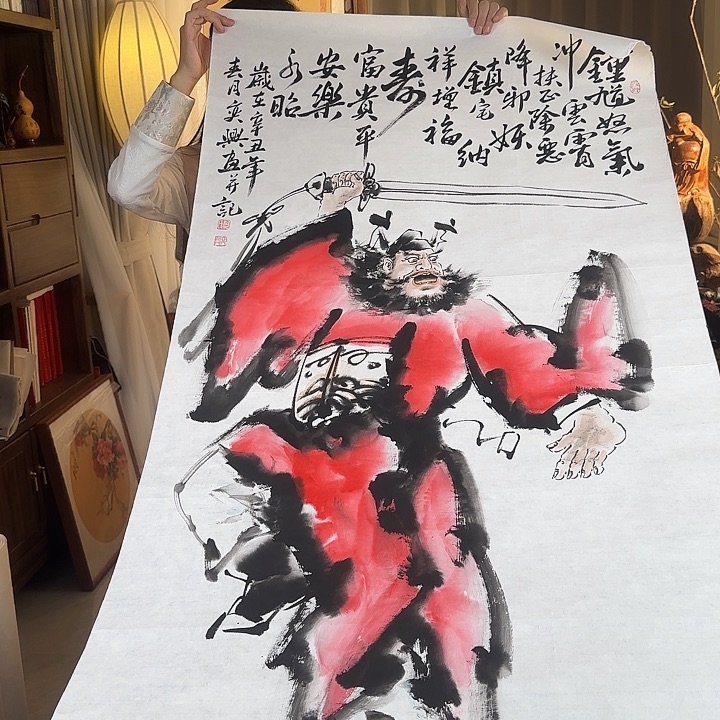 鍾馗怒氣
冲雲霄
扶正除惡
降邪妖
鎮宅納
祥增福
壽
富貴平
安樂
永昭
歲在辛丑年
春月奕興畫并記